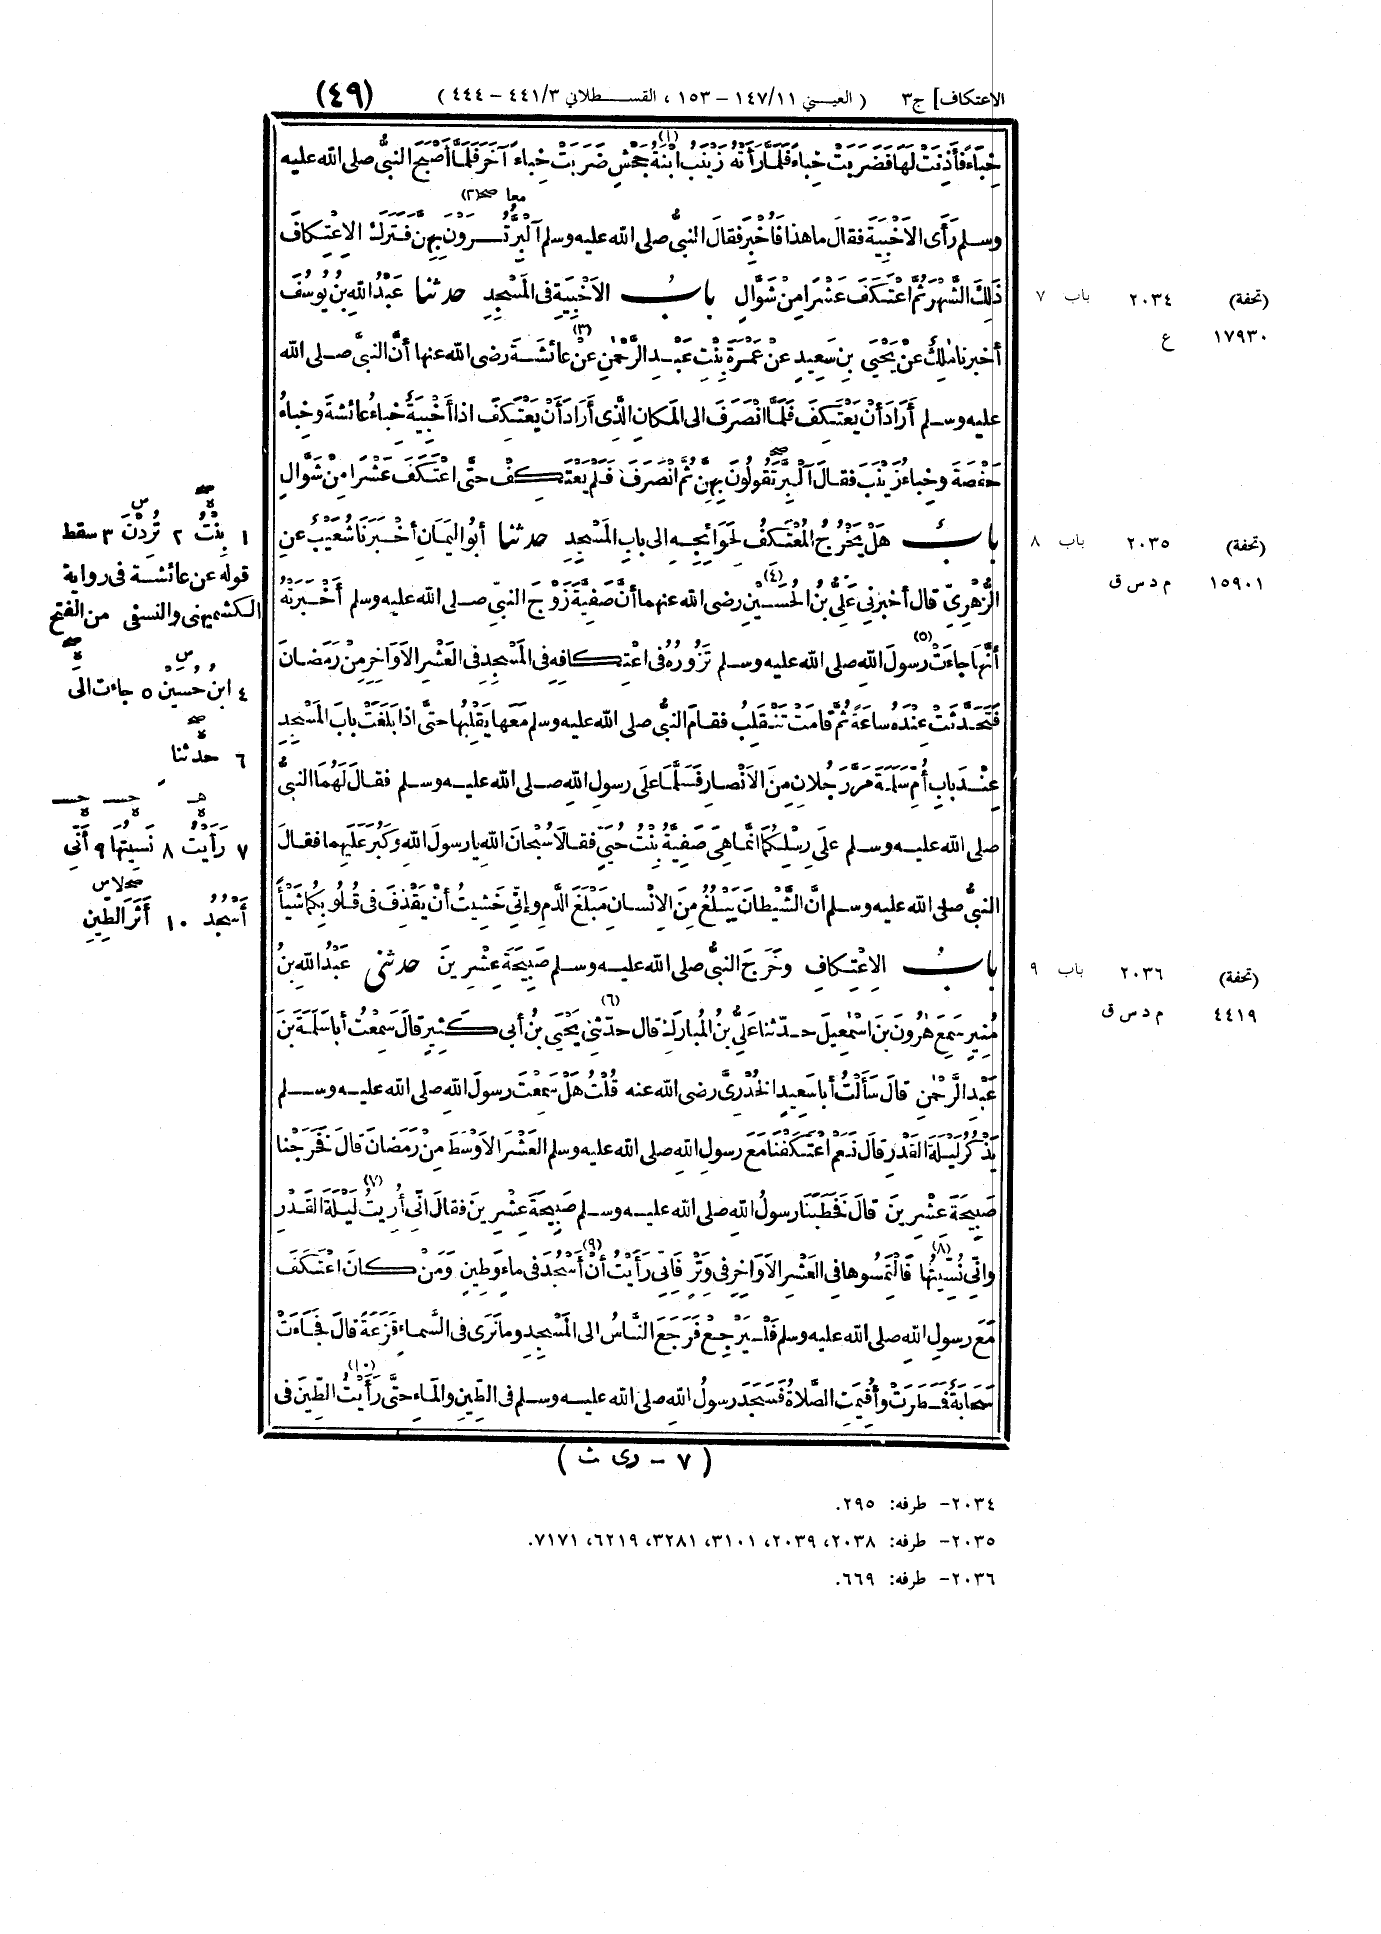 الاعتكاف] ج٣ (العيني ١٤٧/١١ – ١٥٣، القسطلاني ٤٤١/٣ – ٤٤٤) (٤٩)
خِبَاءً فَأَذِنَتْ لَهَا فَضَرَبَتْ خِبَاءً فَلَمَّا رَأَتْهُ زَيْنَبُ ابْنَةُ(١) جَحْشٍ ضَرَبَتْ خِبَاءً آخَرَ فَلَمَّا أَصْبَحَ النبىُّ صلى الله عليه
معا صح(٢)
وسلم رَأَى الاَخْبِيَةَ فقالَ ما هذا فَأُخْبِرَ فقالَ النبىُّ صلى الله عليه وسلم آلْبِرَّ تُرَوْنَ بِهِنَّ فَتَرَكَ الاِعْتِكافَ
ذَلِكَ الشَّهْرَ ثُمَّ اعْتَكَفَ عَشْرًا مِنْ شَوَّالٍ بابُ الاَخْبِيَةِ فى المَسْجِدِ حدثنا عَبْدُ اللهِ بنُ يُوسُفَ
أخبرنا مٰلِكٌ عنْ يَحْيَى بنِ سَعِيدٍ عنْ عَمْرَةَ بِنْتِ عَبْدِ الرَّحْمٰنِ عنْ(٣) عائشَةَ رضى الله عنها أنَّ النبىَّ صلى الله
عليه وسلم أَرَادَ أنْ يَعْتَكِفَ فَلَمَّا انْصَرَفَ الى المَكانِ الَّذِى أَرَادَ أنْ يَعْتَكِفَ اذا أَخْبِيَةٌ خِباءُ عائشةَ وخِباءُ
حَفْصَةَ وخِباءُ زَيْنَبَ فقالَ آلْبِرَّ تَقُولُونَ بِهِنَّ ثُمَّ انْصَرَفَ فَلَمْ يَعْتَكِفْ حتَّى اعْتَكَفَ عَشْرًا مِنْ شَوَّالٍ
بابٌ هَلْ يَخْرُجُ المُعْتَكِفُ لِحَوَائِجِهِ الى بابِ المَسْجِدِ حدثنا أبُو اليَمَانِ أخْبَرَنَا شُعَيْبٌ عنِ
الزُّهْرِىِّ قال أخبرنى عَلِىُّ بنُ الحُسَيْنِ(٤) رضى الله عنهما أنَّ صَفِيَّةَ زَوْجَ النبىِّ صلى الله عليه وسلم أَخْبَرَتْهُ
أنَّهَا جاءَتْ(٥) رسولَ اللهِ صلى الله عليه وسلم تَزُورُهُ فى اعْتِكافِهِ فى المَسْجِدِ فى العَشْرِ الاَوَاخِرِ مِنْ رَمَضانَ
فَتَحَدَّثَتْ عِنْدَهُ ساعَةً ثُمَّ قامَتْ تَنْقَلِبُ فقامَ النبىُّ صلى الله عليه وسلم مَعَها يَقْلِبُها حتَّى اذا بَلَغَتْ بابَ المَسْجِدِ
عِنْدَ بابِ أُمِّ سَلَمَةَ مَرَّ رَجُلانِ مِنَ الاَنْصارِ فَسَلَّمَا علَى رسولِ اللهِ صلى الله عليه وسلم فقالَ لَهُمَا النبىُّ
صلى الله عليه وسلم علَى رِسْلِكُمَا انَّمَا هِىَ صَفِيَّةُ بِنْتُ حُيَىٍّ فقالَا سُبْحانَ اللهِ يا رسولَ اللهِ وكَبُرَ عَلَيْهِما فقالَ
النبىُّ صلى الله عليه وسلم انَّ الشَّيْطانَ يَبْلُغُ مِنَ الاِنْسانِ مَبْلَغَ الدَّمِ وإنِّى خَشِيتُ أنْ يَقْذِفَ فى قُلُوبِكُمَا شَيْأً
بابُ الاِعْتِكافِ وخَرَجَ النبىُّ صلى الله عليه وسلم صَبِيحَةَ عِشْرِينَ حدثنى عَبْدُ اللهِ بنُ
مُنِيرٍ سَمِعَ هٰرُونَ بنَ اسْمٰعِيلَ حدّثنا عَلِىُّ بنُ المُبارَكِ قال حدّثنى(٦) يَحْيَى بنُ أبى كَثِيرٍ قالَ سَمِعْتُ أبا سَلَمَةَ بنَ
عَبْدِ الرَّحْمٰنِ قالَ سَأَلْتُ أبا سَعِيدٍ الخُدْرِىَّ رضى الله عنه قُلْتُ هَلْ سَمِعْتَ رسولَ اللهِ صلى الله عليه وسلم
يَذْكُرُ لَيْلَةَ القَدْرِ قالَ نَعَمْ اعْتَكَفْنَا مَعَ رسولِ اللهِ صلى الله عليه وسلم العَشْرَ الاَوْسَطَ مِنْ رَمَضانَ قالَ فَخَرَجْنا
صَبِيحَةَ عِشْرِينَ قالَ فَخَطَبَنَا رسولُ اللهِ صلى الله عليه وسلم صَبِيحَةَ عِشْرِينَ فقالَ انِّى أُرِيتُ(٧) لَيْلَةَ القَدْرِ
وانِّى نُسِّيتُها(٨) فَالْتَمِسُوها فى العَشْرِ الاَوَاخِرِ فى وِتْرٍ فَانِّى رَأَيْتُ أنْ(٩) أَسْجُدَ فى ماءٍ وَطِينٍ وَمَنْ كانَ اعْتَكَفَ
مَعَ رسولِ اللهِ صلى الله عليه وسلم فَلْيَرْجِعْ فَرَجَعَ النَّاسُ الى المَسْجِدِ وما نَرَى فى السَّماءِ قَزَعَةً قالَ فَجَاءَتْ
سَحَابَةٌ فَمَطَرَتْ وأُقِيمَتِ الصَّلاةُ فَسَجَدَ رسولُ اللهِ صلى الله عليه وسلم فى الطِّينِ والماءِ حتَّى رَأَيْتُ(١٠) الطِّينَ فى
(٧ – رى ث)
(تحفة) ٢٠٣٤ باب ٧
١٧٩٣٠ ع
(تحفة) ٢٠٣٥ باب ٨
١٥٩٠١ م د س ق
(تحفة) ٢٠٣٦ باب ٩
٤٤١٩ م د س ق
١ بِنْتُ ٢ تُرِدْنَ ٣ سقط
قوله عن عائشة فى رواية
الكشميهنى والنسفى من الفتح
٤ ابنُ حُسَيْنٍ ٥ جاءت الى
٦ حدثنا
٧ رَأَيْتُ ٨ نَسِيتُهَا ٩ أَنِّى
أَسْجُدُ ١٠ أَثَرَ الطِّينِ
٢٠٣٤– طرفه: ٢٩٥.
٢٠٣٥– طرفه: ٢٠٣٨، ٢٠٣٩، ٣١٠١، ٣٢٨١، ٦٢١٩، ٧١٧١.
٢٠٣٦– طرفه: ٦٦٩.